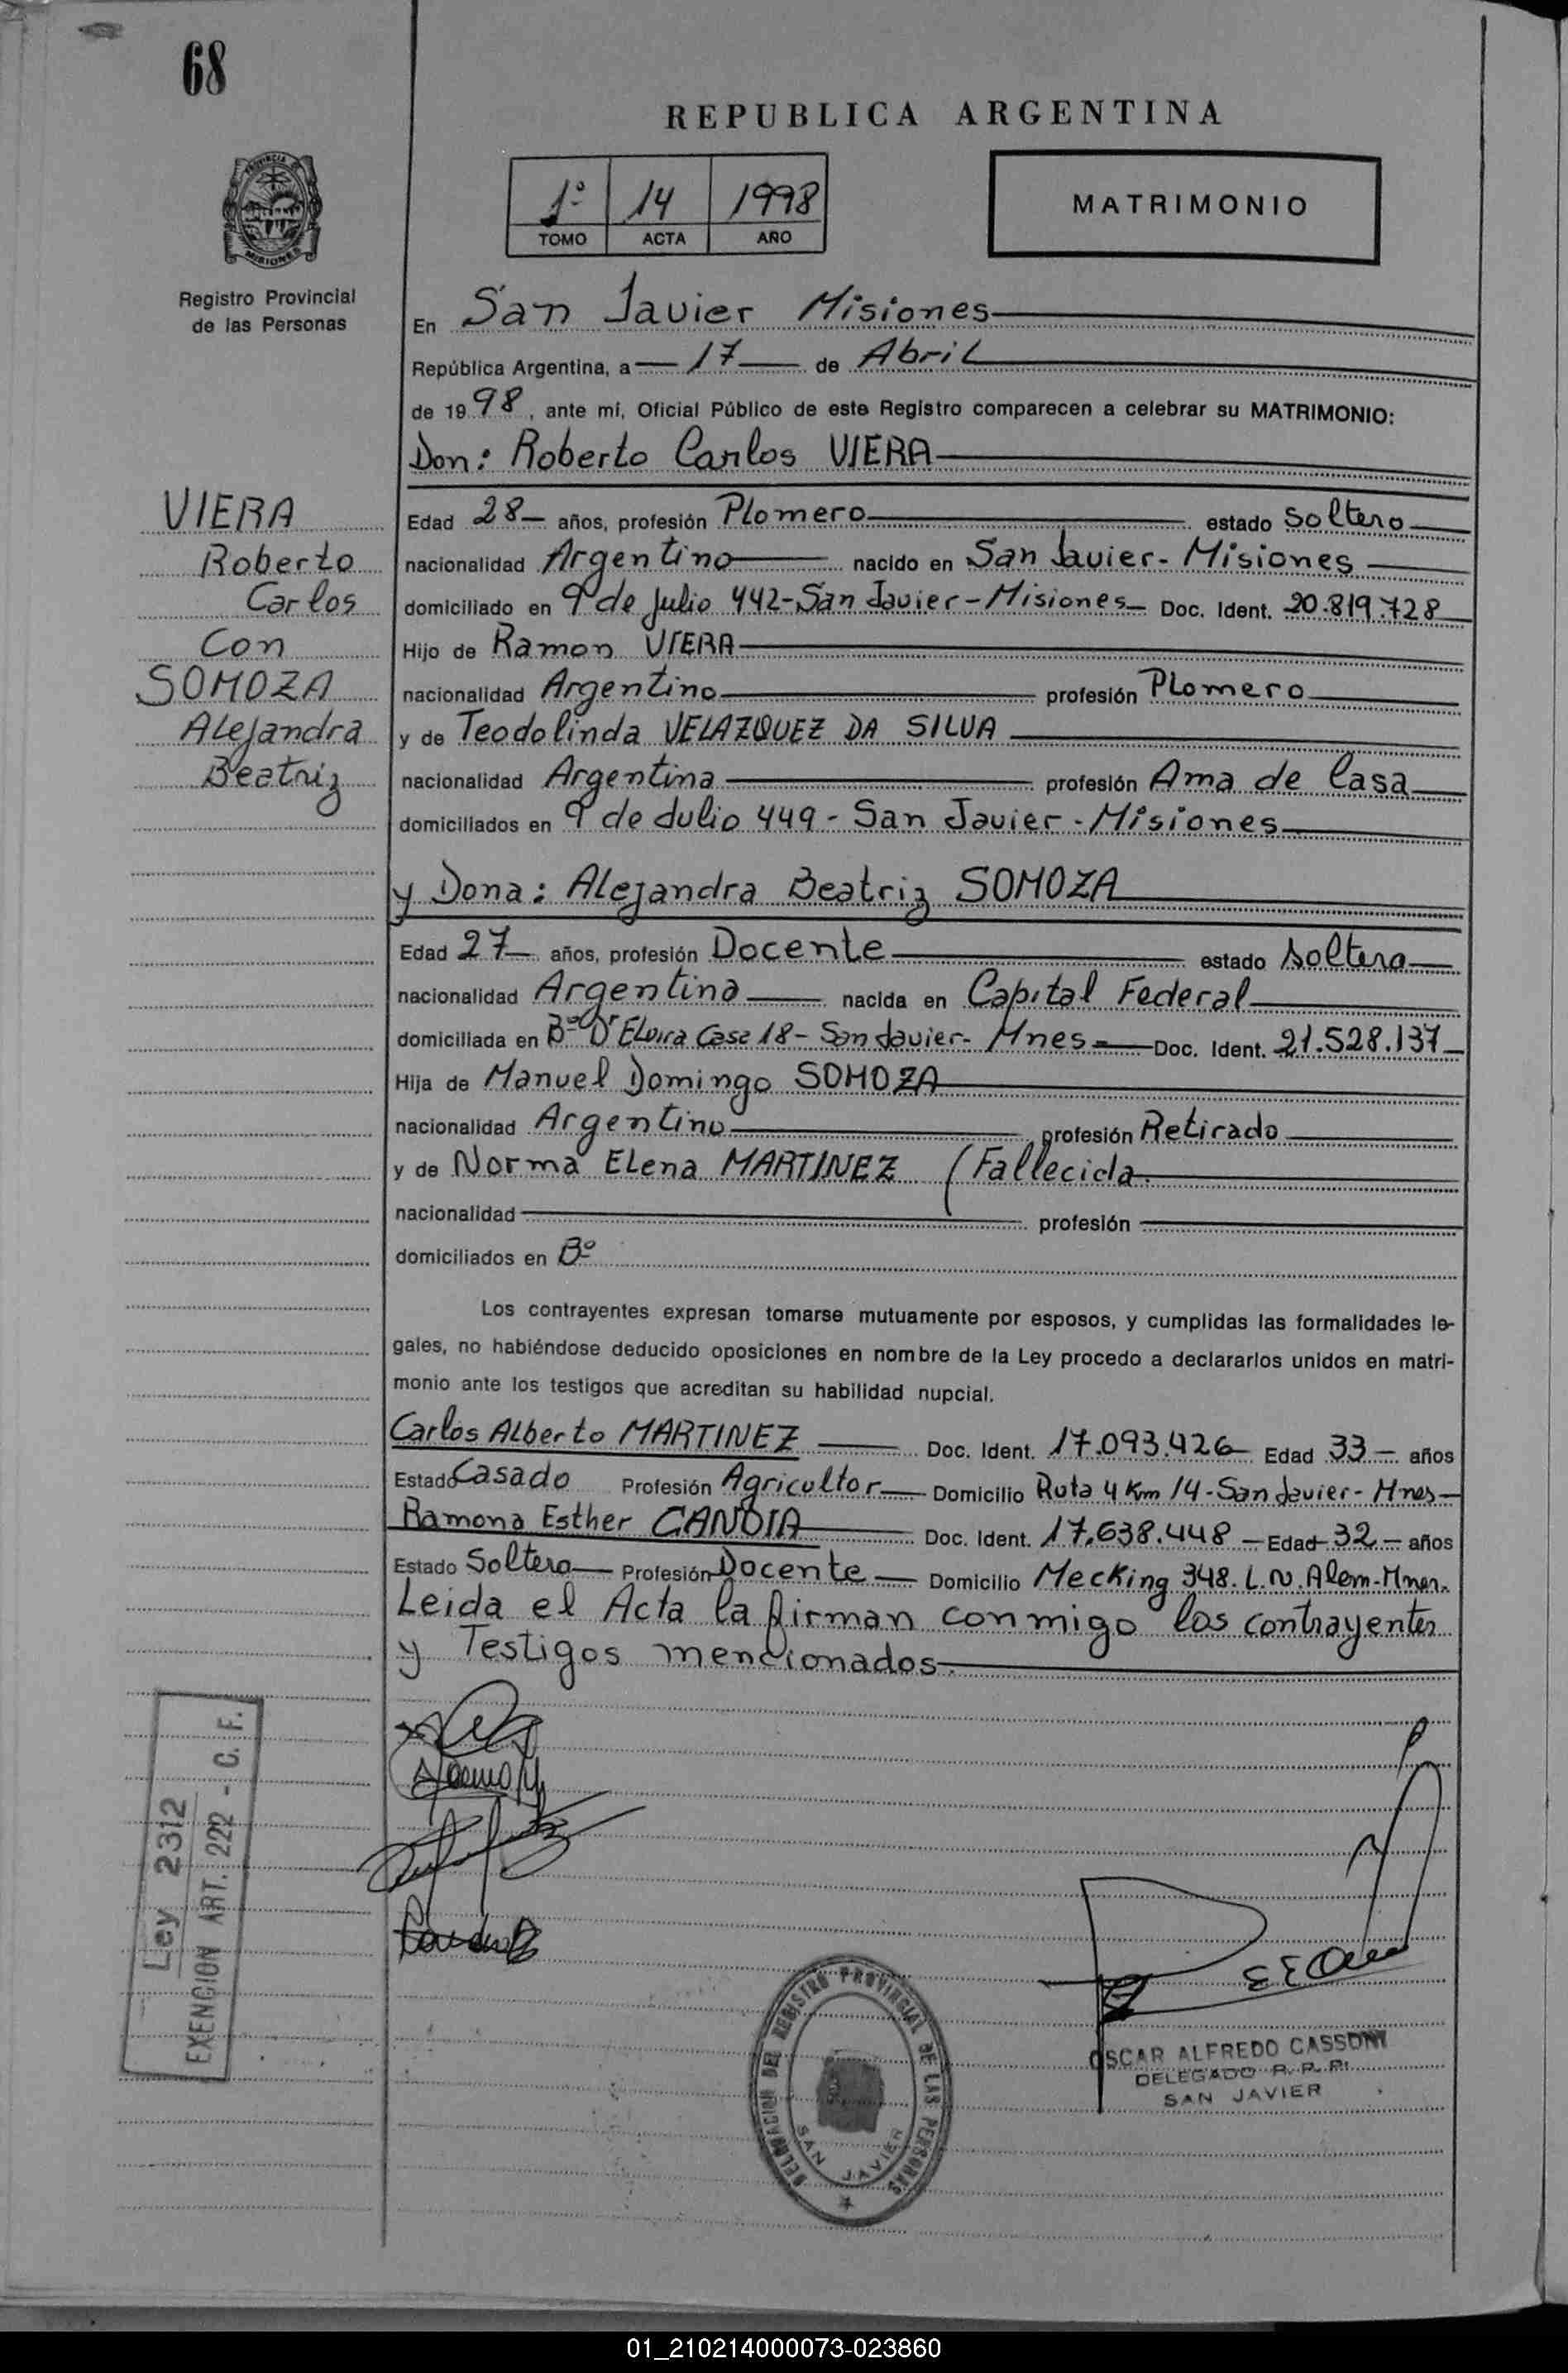 68
REPUBLICA ARGENTINA
1º 14 1998
TOMO ACTA AÑO
MATRIMONIO
PROVINCIA DE
MISIONES
Registro Provincial
de las Personas
En San Javier Misiones
República Argentina, a 17 de Abril
de 1998, ante mí, Oficial Público de este Registro comparecen a celebrar su MATRIMONIO:
Don: Roberto Carlos VIERA
VIERA
Roberto
Carlos
Con
SOMOZA
Alejandra
Beatriz
Edad 28 años, profesión Plomero estado soltero
nacionalidad Argentino nacido en San Javier - Misiones
domiciliado en 9 de Julio 442 - San Javier - Misiones Doc. Ident. 20.819.728
Hijo de Ramon VIERA
nacionalidad Argentino profesión Plomero
y de Teodolinda VELAZQUEZ DA SILVA
nacionalidad Argentina profesión Ama de Casa
domiciliados en 9 de Julio 449 - San Javier - Misiones
y Dona: Alejandra Beatriz SOMOZA
Edad 27 años, profesión Docente estado soltera
nacionalidad Argentina nacida en Capital Federal
domiciliada en Bº Dª Elvira Casa 18 - San Javier - Mnes Doc. Ident. 21.528.137
Hija de Manuel Domingo SOMOZA
nacionalidad Argentino profesión Retirado
y de Norma Elena MARTINEZ (Fallecida.
nacionalidad profesión
domiciliados en Bº
Los contrayentes expresan tomarse mutuamente por esposos, y cumplidas las formalidades le-
gales, no habiéndose deducido oposiciones en nombre de la Ley procedo a declararlos unidos en matri-
monio ante los testigos que acreditan su habilidad nupcial.
Carlos Alberto MARTINEZ Doc. Ident. 17.093.426 Edad 33 años
Estado Casado Profesión Agricultor Domicilio Ruta 4 Km 14 - San Javier - Mnes
Ramona Esther CANDIA Doc. Ident. 17.638.448 Edad 32 años
Estado Soltera Profesión Docente Domicilio Mecking 348. L.N. Alem - Mnes.
Leida el Acta la firman conmigo los contrayentes
y Testigos mencionados.
Ley 2312
EXENCION ART. 222 - C. F.
DELEGACION DEL REGISTRO PROVINCIAL DE LAS PERSONAS
SAN JAVIER
OSCAR ALFREDO CASSONI
DELEGADO R. P. P.
SAN JAVIER
01_210214000073-023860